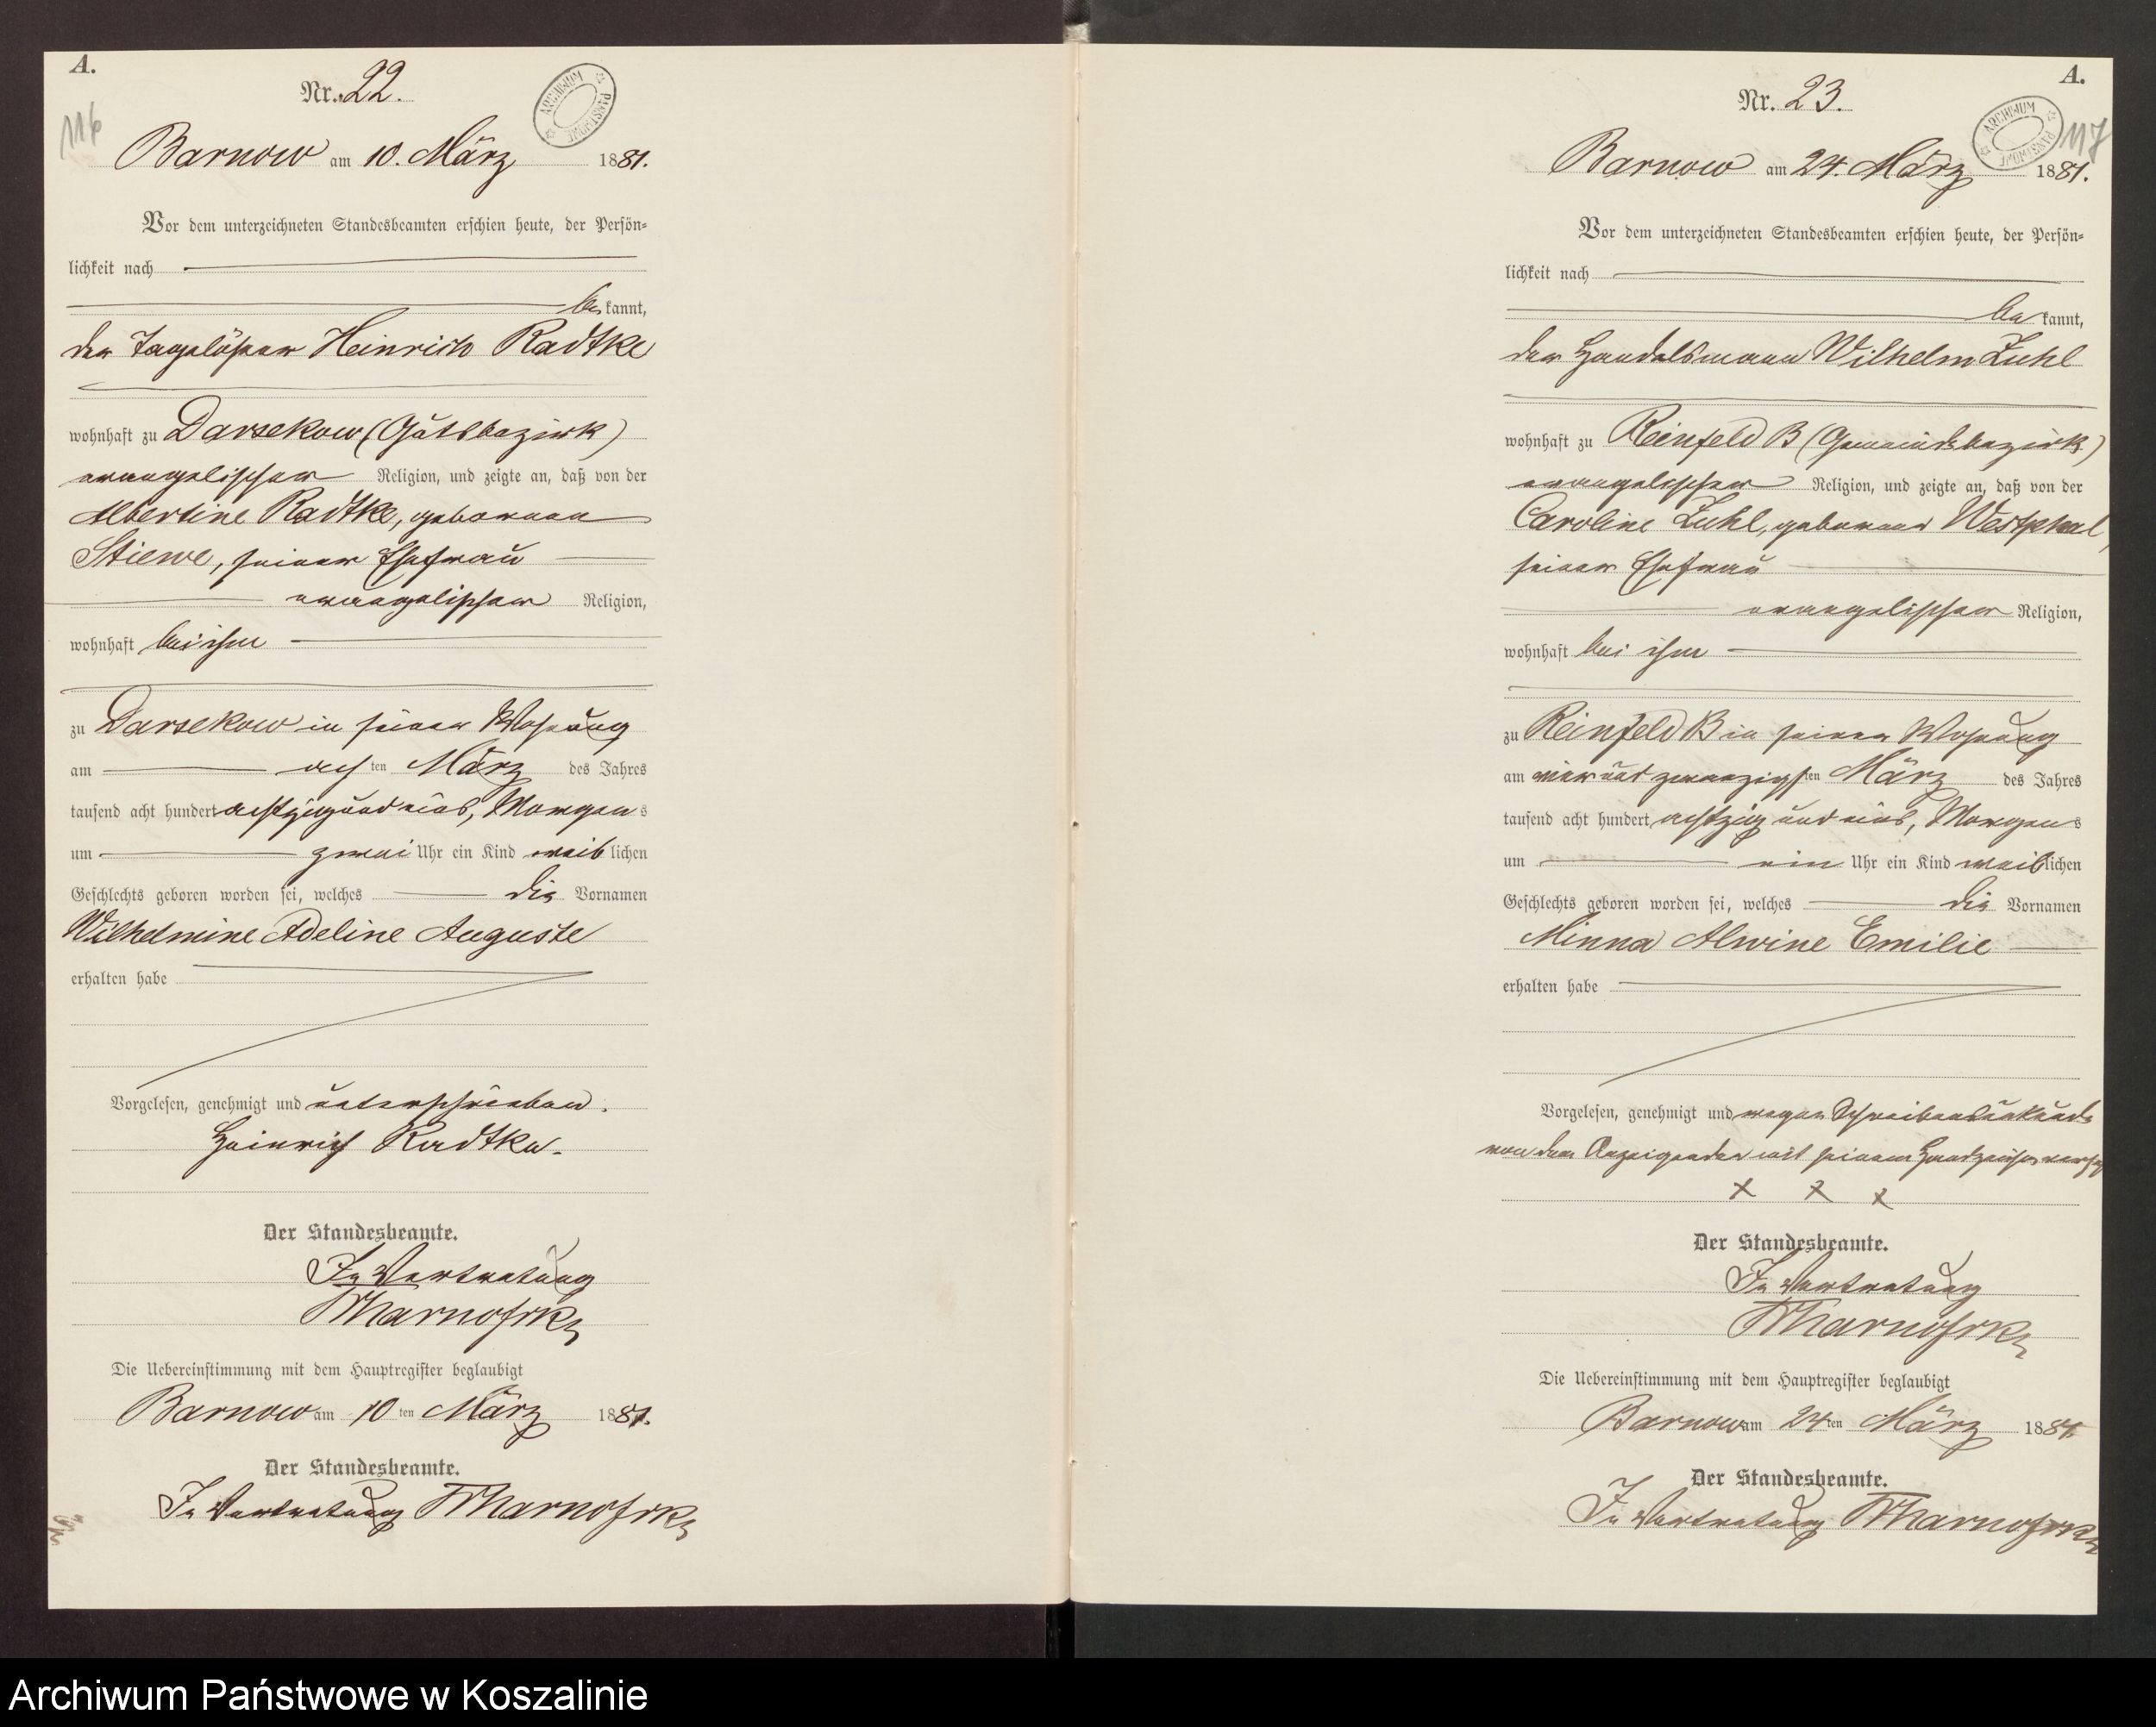 A.
Nr. 22.
ARCHIWUM PAŃSTWOWE
116
Barnow am 10. März 1881.
Vor dem unterzeichneten Standesbeamten erschien heute, der Persön-
lichkeit nach
bekannt,
der Tagelöhner Heinrich Radtke
wohnhaft zu Darsekow (Gutsbezirk)
evangelischer Religion, und zeigte an, daß von der
Albertine Radtke, geborenen
Stiewe, seiner Ehefrau
evangelischer Religion,
wohnhaft bei ihm
zu Darsekow in seiner Wohnung
am achten März des Jahres
tausend acht hundert achtzig und eins, Morgens
um zwei Uhr ein Kind weiblichen
Geschlechts geboren worden sei, welches die Vornamen
Wilhelmine Adeline Auguste
erhalten habe
Vorgelesen, genehmigt und unterschrieben.
Heinrich Radtke.
Der Standesbeamte.
In Vertretung
Die Uebereinstimmung mit dem Hauptregister beglaubigt
Barnow am 10ten März 1881.
Der Standesbeamte.
In Vertretung
A.
Nr. 23.
ARCHIWUM PAŃSTWOWE
117
Barnow am 24. März 1881.
Vor dem unterzeichneten Standesbeamten erschien heute, der Persön-
lichkeit nach
bekannt,
der Handelsmann Wilhelm Luhl
wohnhaft zu Reinfeld B (Gemeindebezirk)
evangelischer Religion, und zeigte an, daß von der
Caroline Luhl, geborenen Westphal,
seiner Ehefrau
evangelischer Religion,
wohnhaft bei ihm
zu Reinfeld B in seiner Wohnung
am vier und zwanzigsten März des Jahres
tausend acht hundert achtzig und eins, Morgens
um ein Uhr ein Kind weiblichen
Geschlechts geboren worden sei, welches die Vornamen
Minna Alwine Emilie
erhalten habe
Vorgelesen, genehmigt und wegen Schreibensunkunde
von dem Anzeigenden mit seinem Handzeichen versehen
x x x
Der Standesbeamte.
In Vertretung
Die Uebereinstimmung mit dem Hauptregister beglaubigt
Barnow am 24ten März 1881.
Der Standesbeamte.
In Vertretung
Archiwum Państwowe w Koszalinie